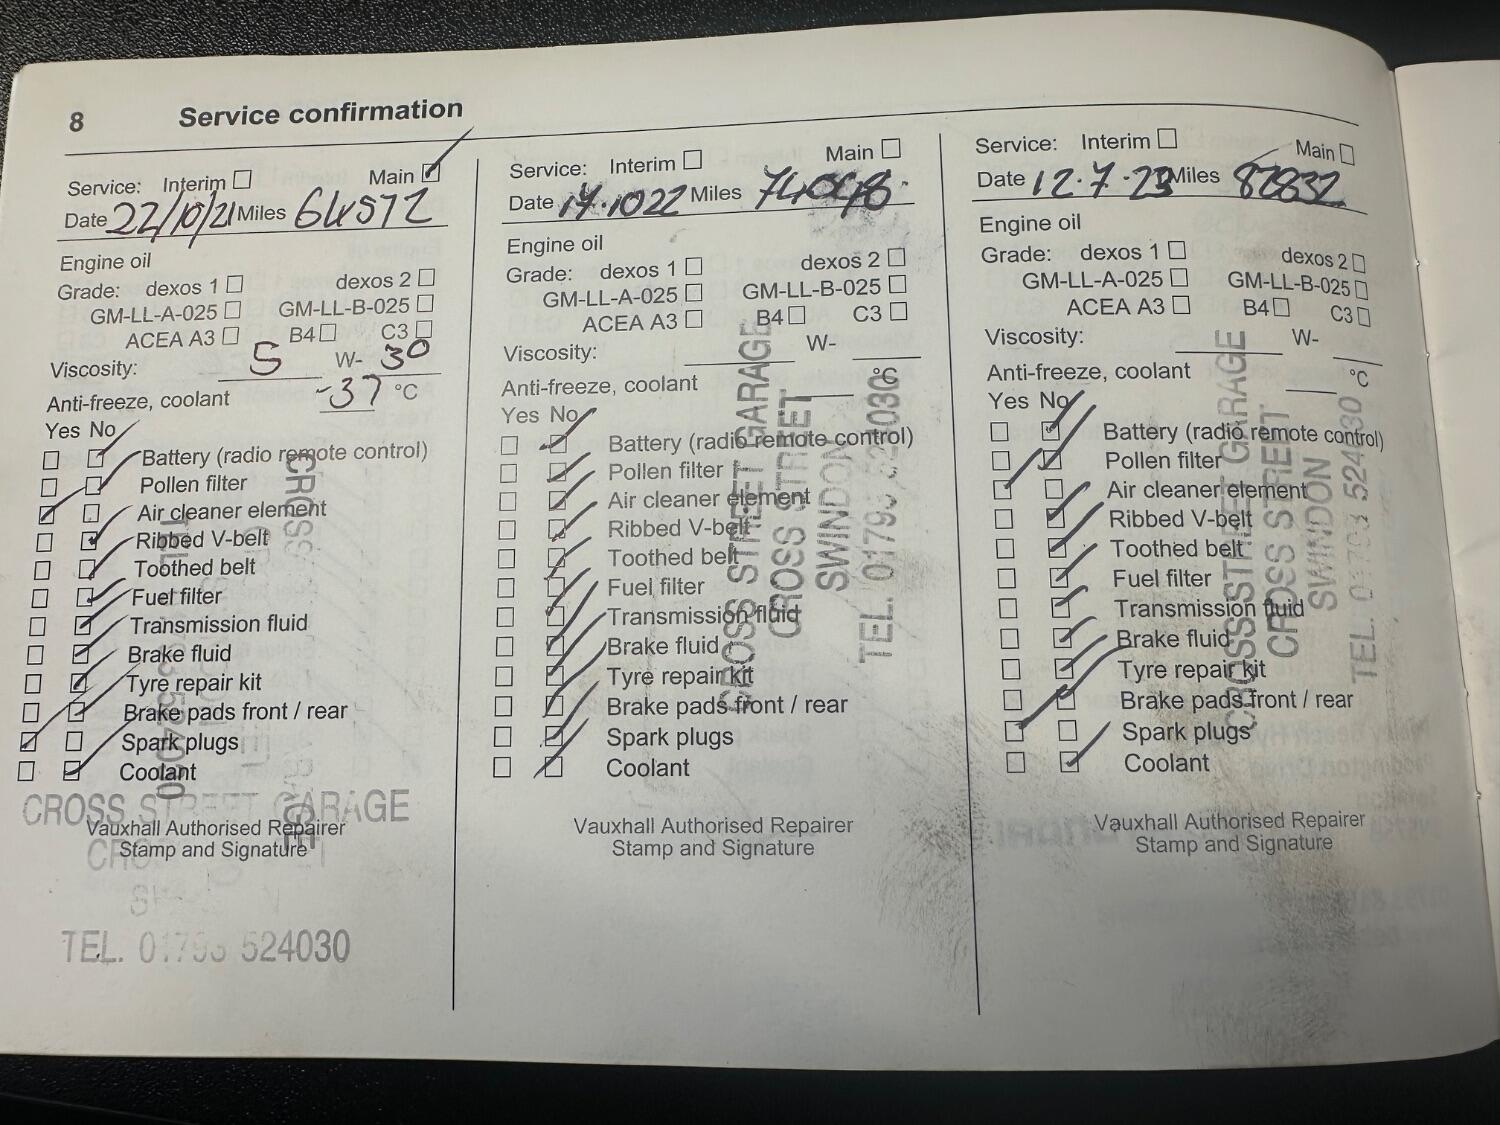 8 Service confirmation
Service: Interim Main
Date 22/10/21 Miles 64572
Engine oil
Grade: dexos 1 dexos 2
GM-LL-A-025 GM-LL-B-025
ACEA A3 B4 C3
Viscosity: 5 W- 30
Anti-freeze, coolant -37 °C
Yes No
Battery (radio remote control)
Pollen filter
Air cleaner element
Ribbed V-belt
Toothed belt
Fuel filter
Transmission fluid
Brake fluid
Tyre repair kit
Brake pads front / rear
Spark plugs
Coolant
CROSS STREET GARAGE
Vauxhall Authorised Repairer
Stamp and Signature
TEL. 01793 524030
Service: Interim Main
Date Miles
Engine oil
Grade: dexos 1 dexos 2
GM-LL-A-025 GM-LL-B-025
ACEA A3 B4 C3
Viscosity: W-
Anti-freeze, coolant °C
Yes No
Battery (radio remote control)
Pollen filter
Air cleaner element
Ribbed V-belt
Toothed belt
Fuel filter
Transmission fluid
Brake fluid
Tyre repair kit
Brake pads front / rear
Spark plugs
Coolant
CROSS STREET GARAGE
CROSS STREET
SWINDON
TEL. 01793 524030
Vauxhall Authorised Repairer
Stamp and Signature
Service: Interim Main
Date 12.7.23 Miles 82832
Engine oil
Grade: dexos 1 dexos 2
GM-LL-A-025 GM-LL-B-025
ACEA A3 B4 C3
Viscosity: W-
Anti-freeze, coolant °C
Yes No
Battery (radio remote control)
Pollen filter
Air cleaner element
Ribbed V-belt
Toothed belt
Fuel filter
Transmission fluid
Brake fluid
Tyre repair kit
Brake pads front / rear
Spark plugs
Coolant
CROSS STREET GARAGE
CROSS STREET
SWINDON
TEL. 01793 524030
Vauxhall Authorised Repairer
Stamp and Signature